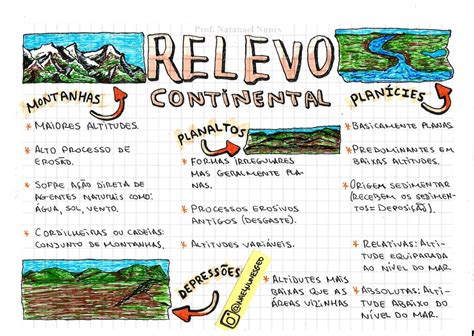 Prof. Natanael Nunes
RELEVO
CONTINENTAL
MONTANHAS
* MAIORES ALTITUDES.
* ALTO PROCESSO DE
EROSÃO.
* SOFRE AÇÃO DIRETA DE
AGENTES NATURAIS COMO:
ÁGUA, SOL, VENTO.
* CORDILHEIRAS OU CADEIAS:
CONJUNTO DE MONTANHAS.
PLANALTOS
* FORMAS IRREGULARES
MAS GERALMENTE PLA-
NAS.
* PROCESSOS EROSIVOS
ANTIGOS (DESGASTE).
* ALTITUDES VARIÁVEIS.
PLANÍCIES
* BASICAMENTE PLANAS
* PREDOMINANTES EM
BAIXAS ALTITUDES.
* ORIGEM SEDIMENTAR
(RECEBEM OS SEDIMEN-
TOS = DEPOSIÇÃO).
DEPRESSÕES
* ALTIDUTES MAIS
BAIXAS QUE AS
ÁREAS VIZINHAS
* RELATIVAS: ALTI-
TUDE EQUIPARADA
AO NÍVEL DO MAR.
* ABSOLUTAS: ALTI-
TUDE ABAIXO DO
NÍVEL DO MAR.